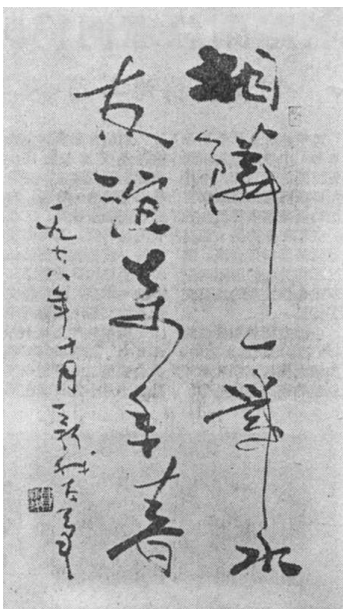 相隣一葦水
友誼萬年春
一九七八年十月